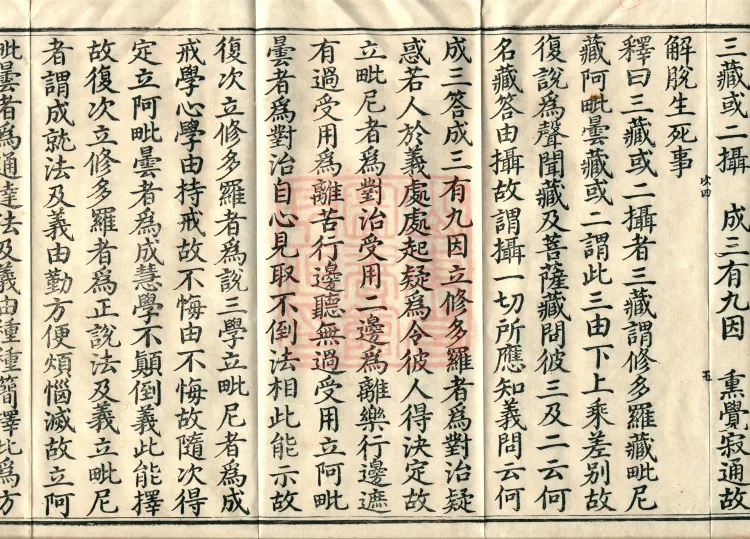 三藏或二攝　成三有九因　熏覺寂通故
解脫生死事
釋曰三藏或二攝者三藏謂修多羅藏毗尼
藏阿毗曇藏或二謂此三由下上乘差別故
復說爲聲聞藏及菩薩藏問彼三及二云何
名藏答由攝故謂攝一切所應知義問云何
成三答成三有九因立修多羅者爲對治疑
惑若人於義處處起疑爲令彼人得決定故
立毗尼者爲對治受用二邊爲離樂行邊遮
有過受用爲離苦行邊聽無過受用立阿毗
曇者爲對治自心見取不倒法相此能示故
復次立修多羅者爲說三學立毗尼者爲成
戒學心學由持戒故不悔由不悔故隨次得
定立阿毗曇者爲成慧學不顚倒義此能擇
故復次立修多羅者爲正說法及義立毗尼
者謂成就法及義由勤方便煩惱滅故立阿
毗曇者爲通達法及義由種種簡擇此爲方